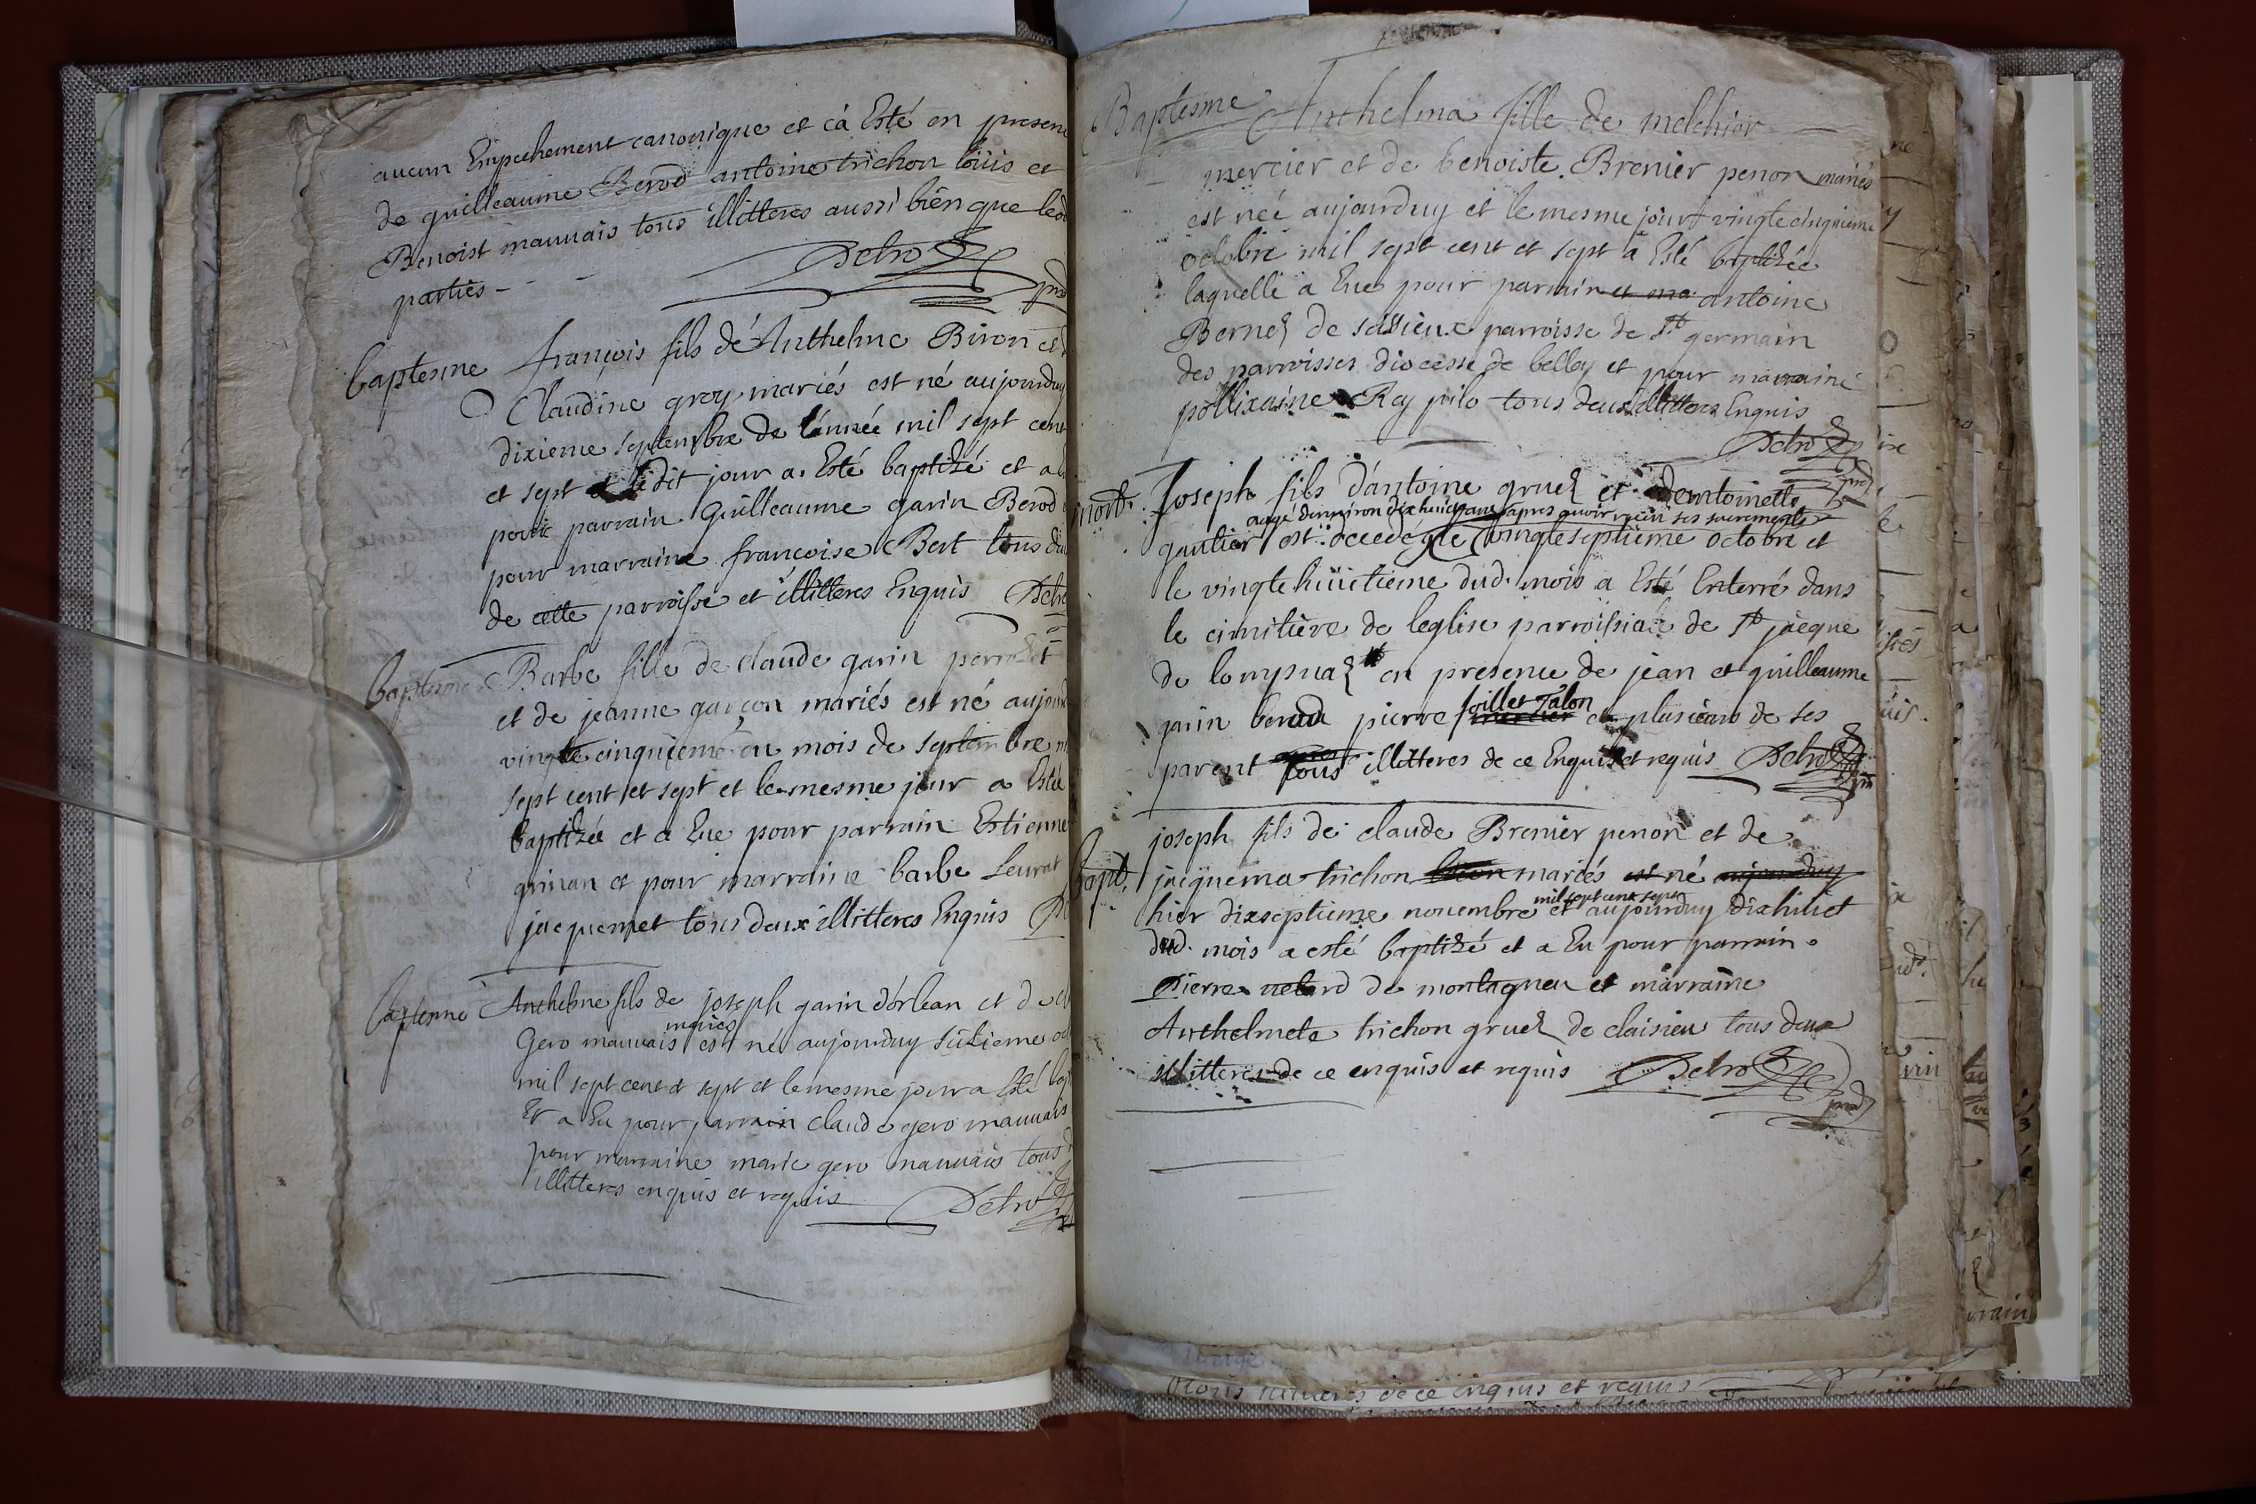 aucun Empechement canonique et cà Esté en presen
de guilleaume Berod antoine trichon loüis et
Benoist mauuais tous illitteres aussi bien que led
parties -
Detro
baptesme françois fils dé Anthelme Biron et d
Claudine groy mariés est né aujourduy
dixieme septembre de l'année mil sept cent
et sept ledit jour a Esté baptizé et a
pour parrain Guilleaume garin Berod
pour marraine françoise Bert tous
de cette parroisse et illitteres Enquis Detro
baptesme Barbe fille de claude garin
et de jeanne garçon mariés est né aujour
vingte cinquieme du mois de septembre m
sept cent et sept et le mesme jour a Estée
baptizée et a Eue pour parrain Estienne
grinan et pour marraine barbe Leurat
jacquemet tous deux illitteres Enquis
baptesme Anthelme fils de joseph garin d'órlean et de
mariés
Gero mauuais est né aujourduy
mil sept cent et sept et le mesme jour a Esté bap
Et a Eu pour parrain claude gero mauuais
pour marraine marie gero mauuais tous
illitteres enquis et requis Detro
Baptesme Anthelma fille de melchior
mercier et de benoiste Brenier penon mariés
est neé aujourduy et le mesme jour vingte cinquieme
octobre mil sept cent et sept a Esté baptizée
laquelle a Eue pour parrain et ma antoine
Bernez de parroisse de St germain
des parroisses diocesse de belley et pour marraine
pollixaine Rey pilo tous deux illitteres Enquis
Detro
mort. Joseph fils d'antoine gruez et d'entoinette
aagé denuiron dix huict ans apres auoir receu ses sacrements
gautier est decedé le vingte septieme octobre et
le vingte hüictieme dud. mois a Esté Enterré dans
le cimitiére de leglise parroissiale de St jacque
de lompnaz en presence de jean et guilleaume
foillet Talon
garin berod pierre mercier et plusieurs de ses
parent tous illitteres de ce Enquis et requis Detro
joseph fils de claude Brenier penon et de
bapt. jacquema trichon mariés est né aujourduy
mil sept cent sept
hier dixseptieme nouembre et aujourduy dixhuict
dud. mois a esté baptizé et a Eu pour parrain
Pierre uelard de montagneu et marraine
Anthelmete trichon gruez de claisieu tous deux
illitteres de ce enquis et requis Detro